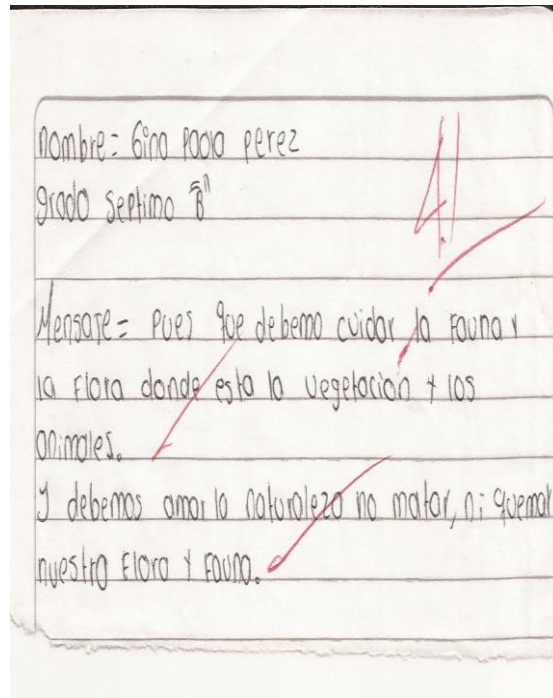 nombre = Gina Paola perez
grado septimo "B"
4.1
Mensaje = pues que debemo cuidar la Fauna y
la Flora donde esta la vegetacion y los
animales.
Y debemos amar la naturaleza no matar, ni quemar
nuestra Flora y Fauna.